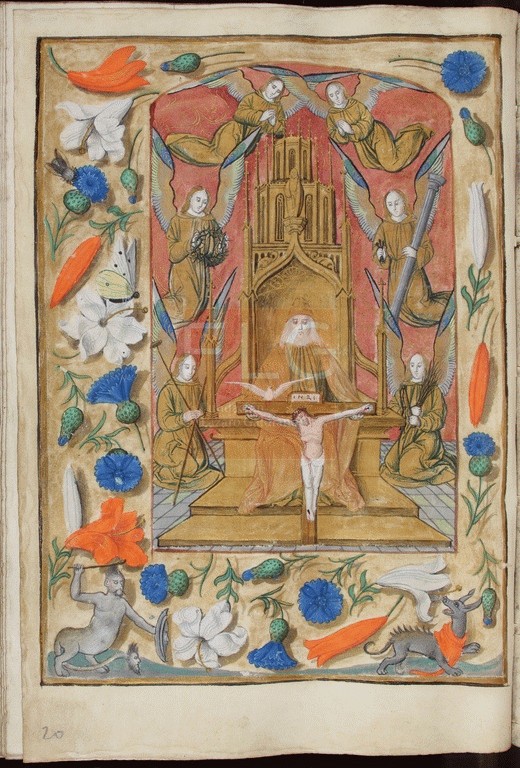 I·N·R·I
20